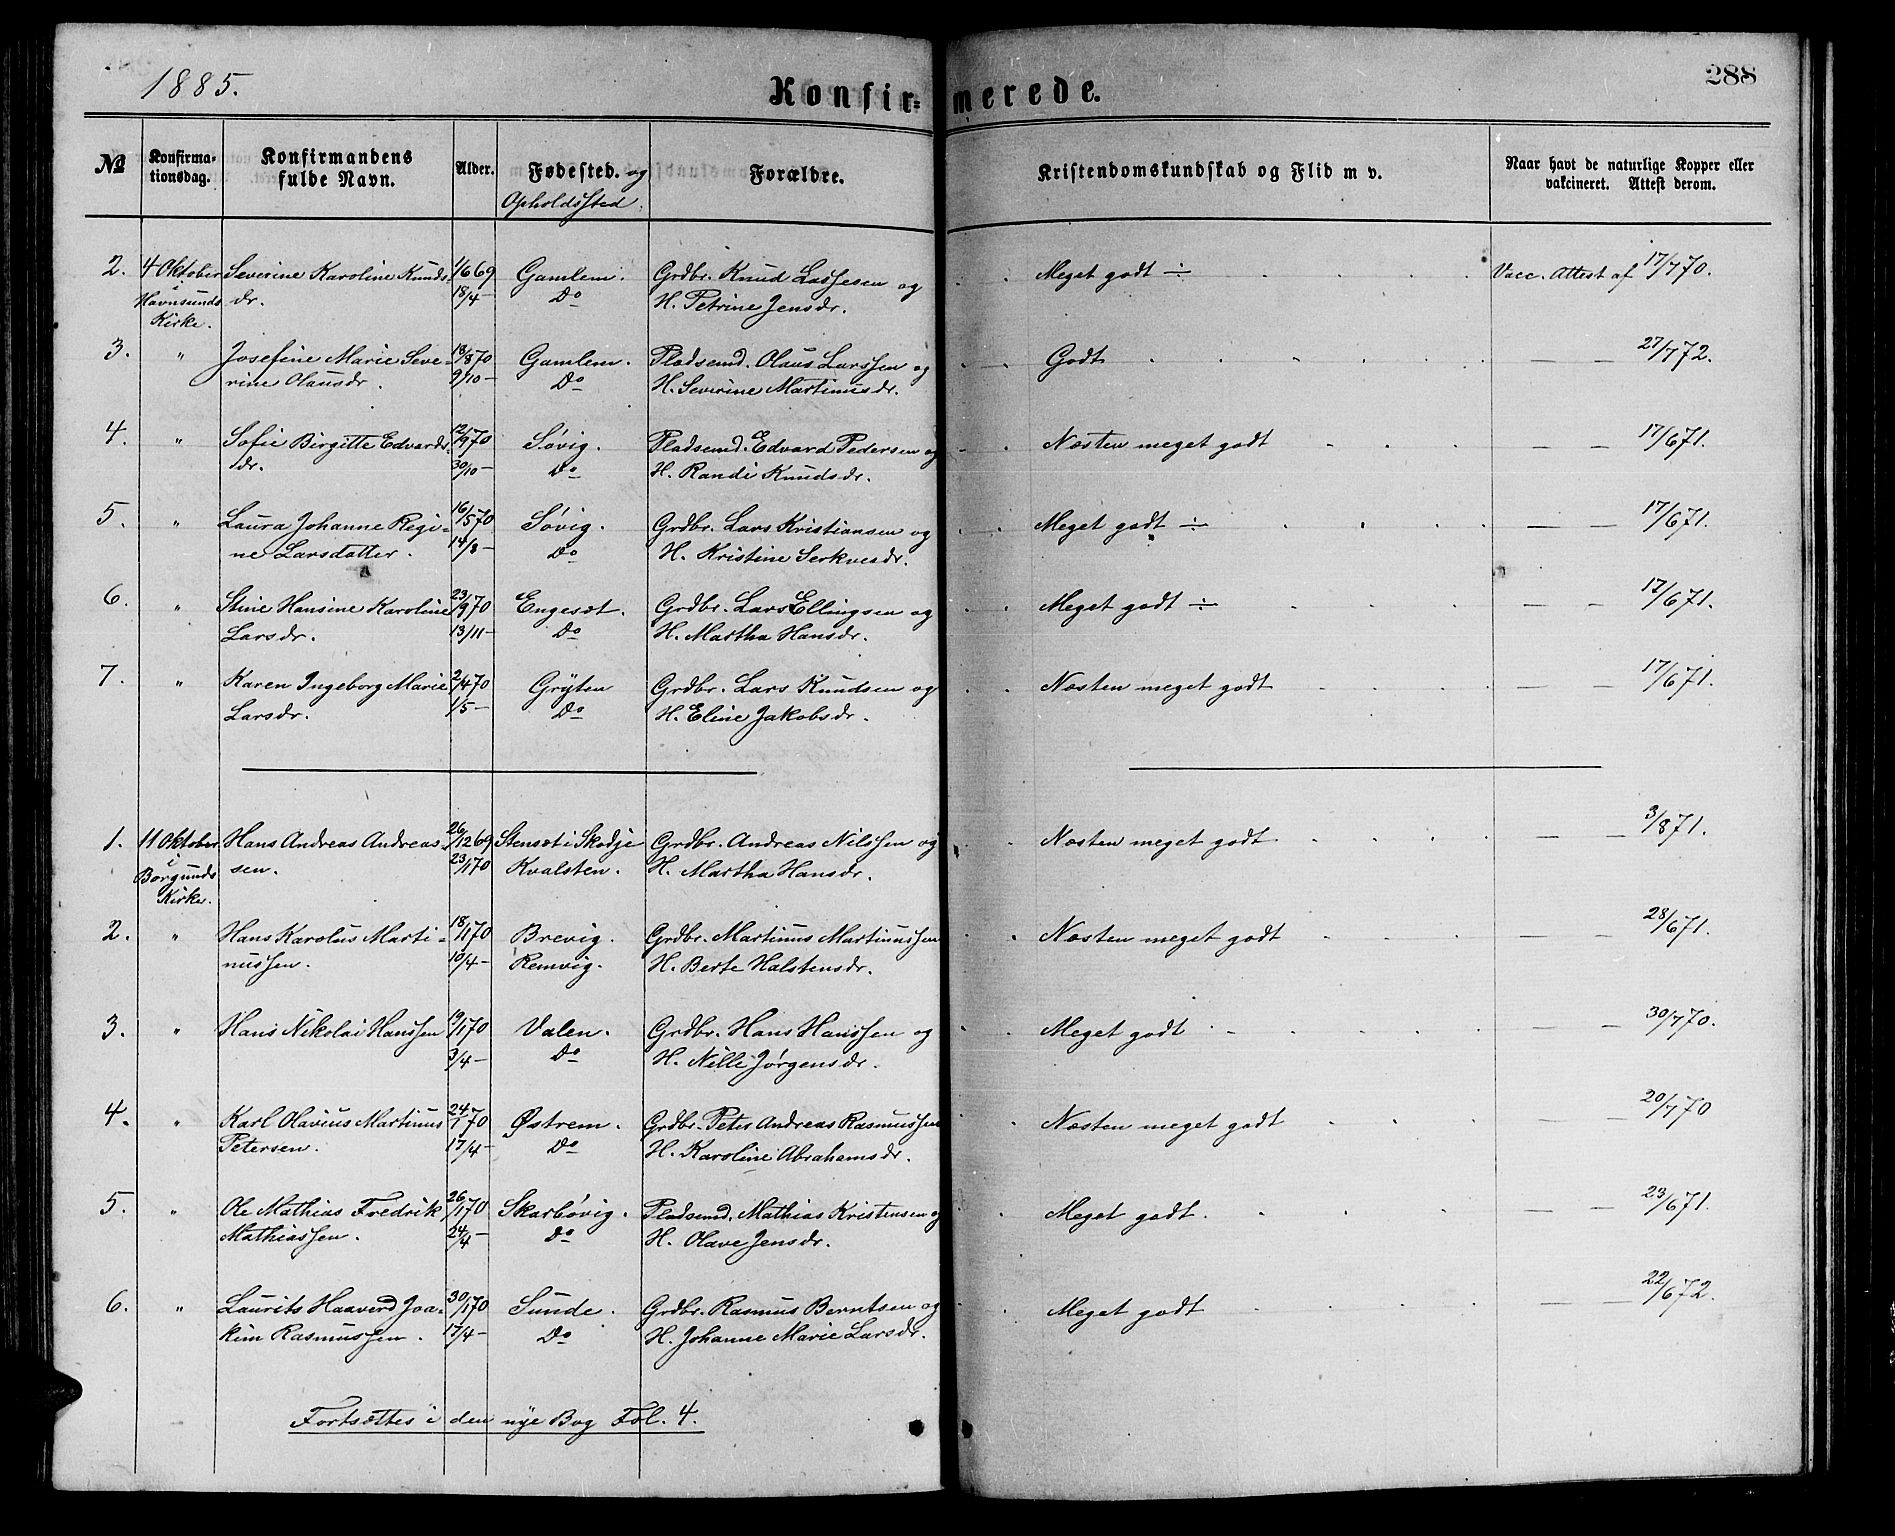 1885.
Konfirmerede.
288
№
Konfirmationsdag.
Konfirmandens fulde Navn.
Alder.
Fødested. og Opholdssted.
Forældre.
Kristendomskundskab og Flid m v.
Naar havt de naturlige Kopper eller vakcineret. Attest derom.
2. 4 Oktober Severine Karoline Knuds- 1/6 69 Gamlem. Grdbr. Knud Lassesen og Meget godt ÷ Vacc. Attest af 17/7 70.
i Havnsunds dr. 18/4 — Do H. Petrine Jensdr.
Kirke.
3. " Josefine Marie Seve- 18/8 70 Gamlem. Pladsemd. Olaus Larssen og Godt — — 27/7 72.
rine Olausdr. 9/10 — Do H. Severine Martinusdr.
4. " Sofie Birgitte Edvards- 12/9 70 Søvig. Pladsemd. Edvard Pedersen og Næsten meget godt — — 17/6 71.
dr. 30/10 — Do H. Randi Knudsdr.
5. " Laura Johanne Regi- 16/5 70 Søvig. Grdbr. Lars Kristiansen og Meget godt ÷ — — 17/6 71.
ne Larsdatter. 14/8 — Do H. Kristine Serkvesdr.
6. " Stine Hansine Karoline 23/9 70 Engesæt. Grdbr. Lars Ellingsen og Meget godt ÷ — — 17/6 71.
Larsdr. 13/11 — Do H. Martha Hansdr.
7. " Karen Ingeborg Marie 2/4 70 Gryten Grdbr. Lars Knudsen og Næsten meget godt — — 17/6 71.
Larsdr. 1/5 — Do H. Eline Jakobsdr.
1. 11 Oktober Hans Andreas Andreas- 26/12 69 Stensæt i Skodje Grdbr. Andreas Nilssen og Næsten meget godt — — 3/8 71.
i Borgunds sen. 23/1 70 Kvalsten. H. Martha Hansdr.
Kirke.
2. " Hans Karolus Marti- 18/1 70 Brevig. Grdbr. Martinus Martinussen Næsten meget godt — — 28/6 71.
nussen. 10/4 — Remvig. H. Berte Halstensdr.
3. " Hans Nikolai Hanssen 19/1 70 Valen. Grdbr. Hans Hanssen og Meget godt — 30/7 70.
3/4 — Do H. Nilli Jørgensdr.
4. " Karl Olavius Martinus 24/1 70 Østrem. Grdbr. Peter Andreas Rasmussen Næsten meget godt — — 20/7 70
Petersen. 17/4 — Do H. Karoline Abrahamsdr.
5. " Ole Mathias Fredrik 26/1 70 Skarbøvig. Pladsemd. Mathias Kristensen og Meget godt. — — 23/6 71.
Mathiassen. 24/4 — Do H. Olave Jensdr.
6. " Laurits Haaverd Joa- 30/1 70 Sunde. Grdbr. Rasmus Berntsen og Meget godt — — 22/6 72.
kim Rasmussen. 17/4 — Do H. Johanne Marie Larsdr.
Fortsættes i den nye Bog Fol. 4.